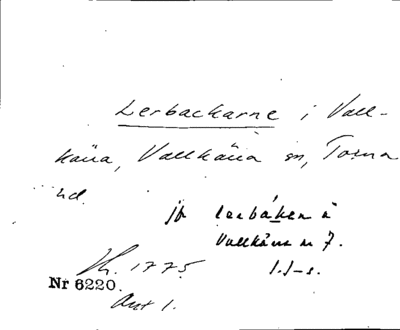 Lerbackarne i Vall-
kära, Vallkära sn, Torna
hd.
jfr lerbäken å
Vallkära nr 7.
1775
Nr 6220.
Akt 1.